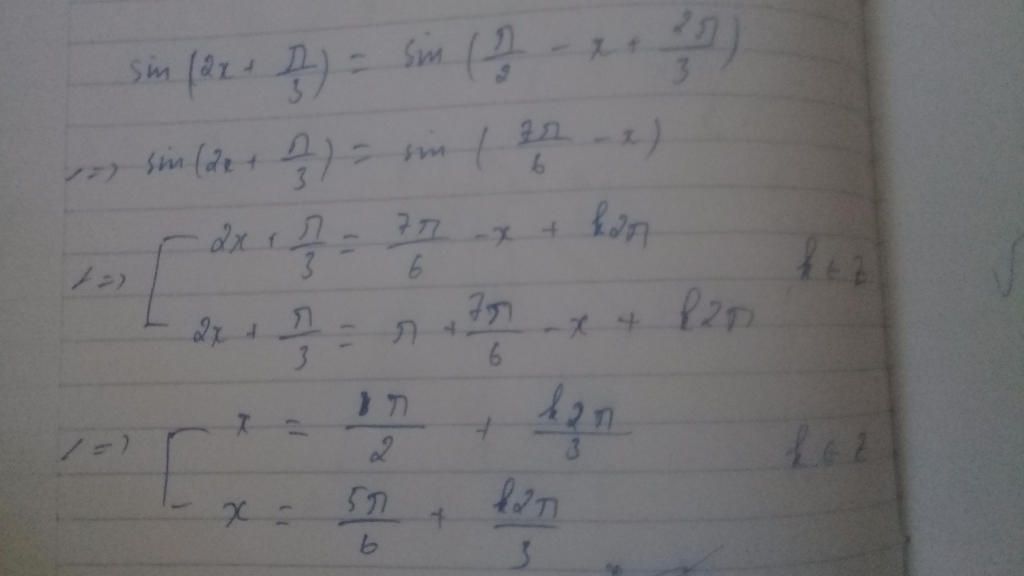 sin (2x + π/3) = sin (π/2 - x + 2π/3)
<=> sin (2x + π/3) = sin (7π/6 - x)
<=> [ 2x + π/3 = 7π/6 - x + k2π
2x + π/3 = π + 7π/6 - x + k2π k ∈ Z
<=> [ x = π/2 + k2π/3 k ∈ Z
x = 5π/6 + k2π/3